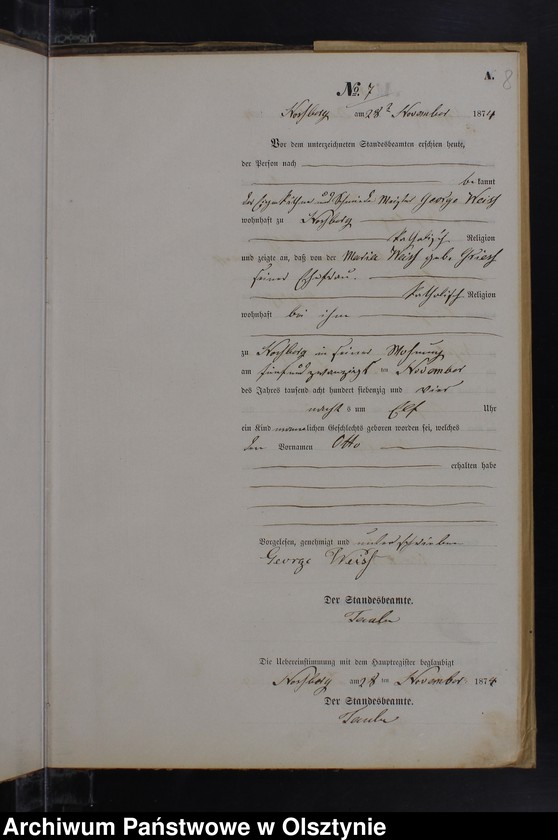 A.
8
No. 7
am 28t November 1874
Vor dem unterzeichneten Standesbeamten erschien heute,
der Person nach
bekannt
der Eigenkäthner und Schmiede Meister George Weiss
wohnhaft zu
katholisch Religion
und zeigte an, daß von der Maria Weiss geb.
seiner Ehefrau
katholisch Religion
wohnhaft bei ihm
zu in seiner Wohnung
am fünfundzwanzigsten November
des Jahres tausend acht hundert siebenzig und vier
nachts um Elf Uhr
ein Kind maennlichen Geschlechts geboren worden sei, welches
den Vornamen Otto
erhalten habe
Vorgelesen, genehmigt und unterschrieben
George Weiss
Der Standesbeamte.
Die Uebereinstimmung mit dem Hauptregister beglaubigt
am 28 ten November 1874
Der Standesbeamte.
Archiwum Państwowe w Olsztynie